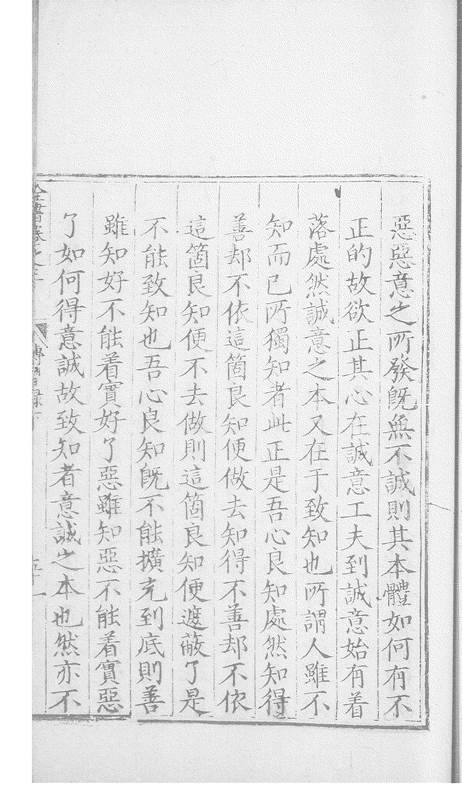 惡惡意之所發既無不誠則其本體如何有不
正的故欲正其心在誠意工夫到誠意始有着
落處然誠意之本又在于致知也所謂人雖不
知而已所獨知者此正是吾心良知處然知得
善却不依這箇良知便做去知得不善却不依
這箇良知便不去做則這箇良知便遮蔽了是
不能致知也吾心良知既不能擴充到底則善
雖知好不能着實好了惡雖知惡不能着實惡
了如何得意誠故致知者意誠之本也然亦不